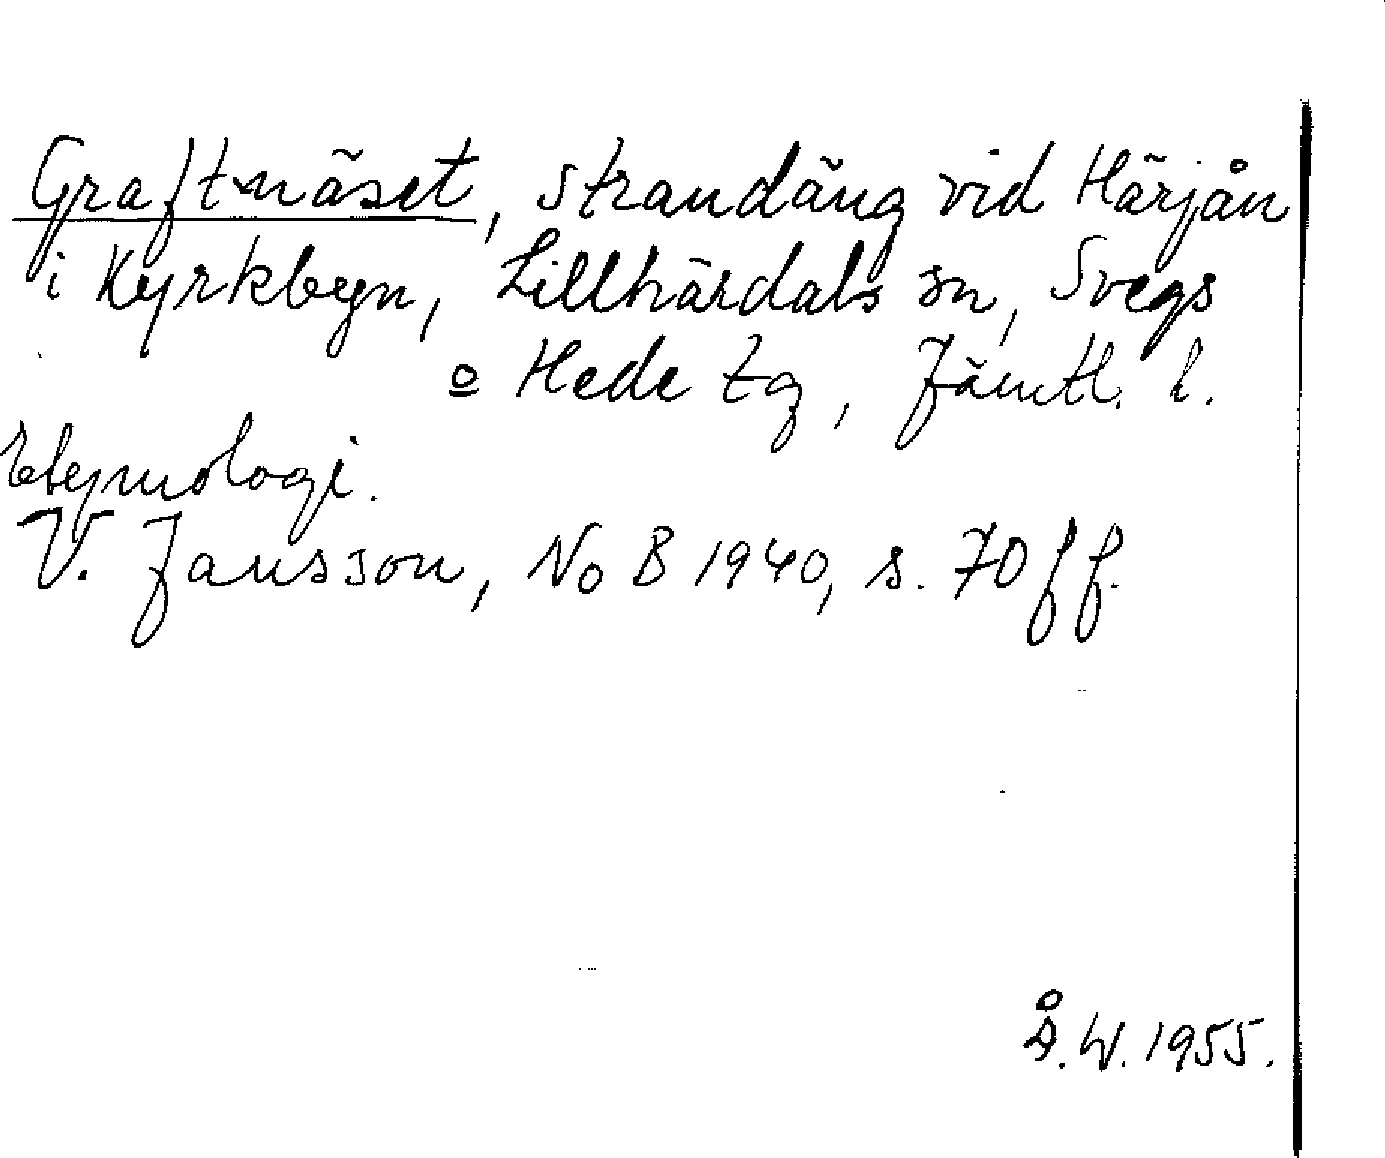 Graftnäset, strandäng vid Härjån
i Kyrkbyn, Lillhärdals sn, Svegs
o Hede tg, Jämtl. l.
Etymologi.
V. Jansson, NoB 1940, s. 70 ff.
Å. W. 1955.